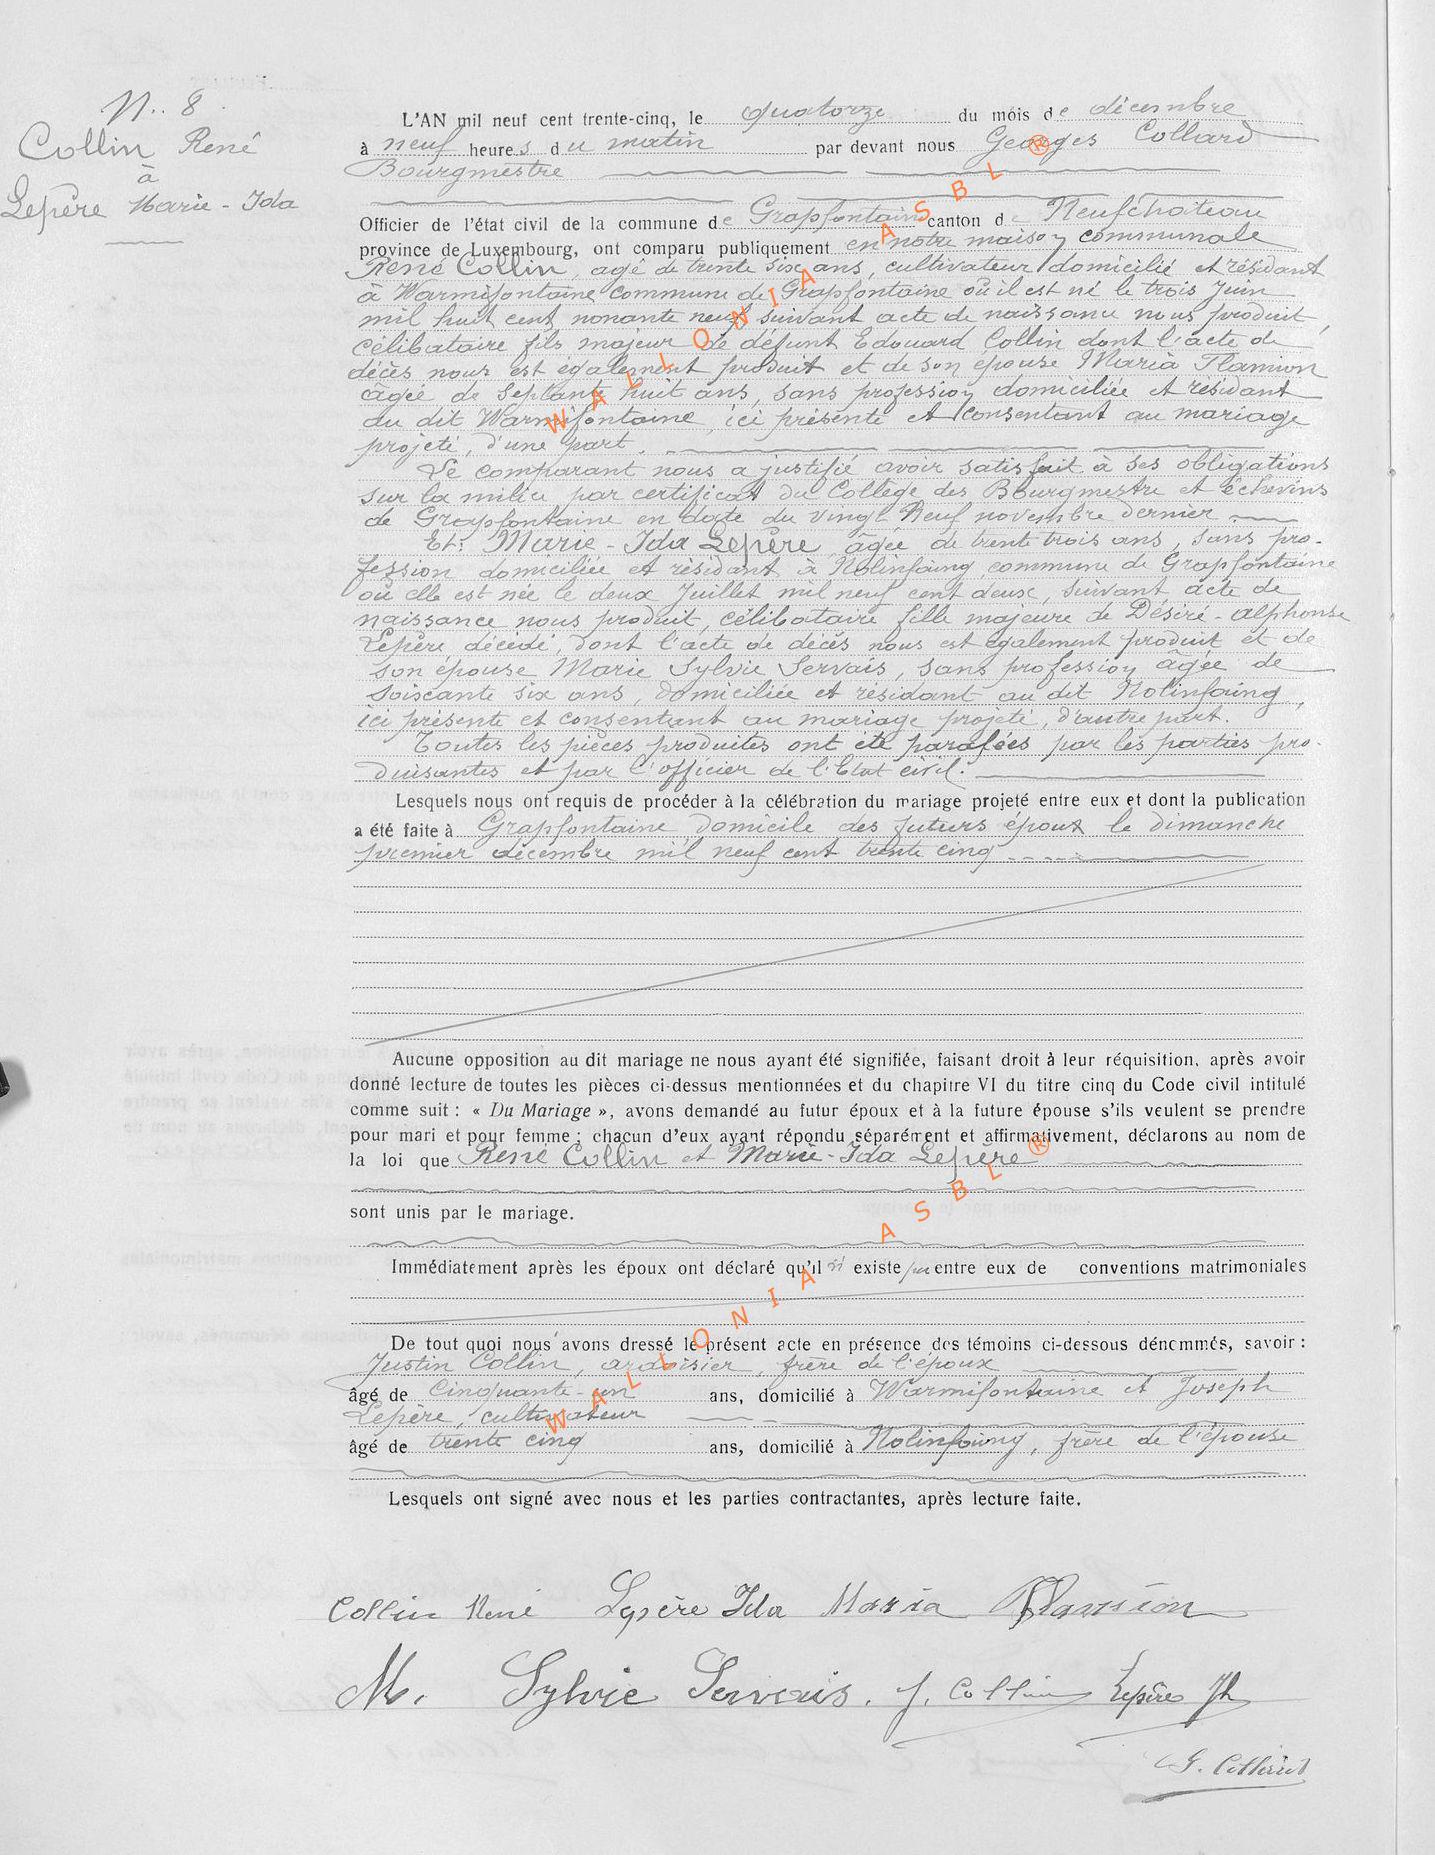 N.. 8
Collin René
à
Lepère Marie-Ida
L'AN mil neuf cent trente-cinq, le quatorze du mois de décembre
à neuf heures du matin par devant nous Georges Collard
Bourgmestre
Officier de l'état civil de la commune de Grapfontaine canton de Neufchateau
province de Luxembourg, ont comparu publiquement en notre maison communale
René Collin, agé de trente six ans, cultivateur domicilié et résidant
à Warmifontaine commune de Grapfontaine où il est né le trois Juin
mil huit cent nonante neuf suivant acte de naissance nous produit,
célibataire fils majeur de défunt Edouard Collin dont l'acte de
décès nous est également produit et de son épouse Maria Flamion
âgée de septante huit ans, sans profession domiciliée et résidant
au dit Warmifontaine, ici présente et consentant au mariage
projeté, d'une part.
Le comparant nous a justifié avoir satisfait à ses obligations
sur la milice par certificat du Collège des Bourgmestre et échevins
de Grapfontaine en date du vingt neuf novembre dernier.
Et: Marie-Ida Lepère, âgée de trente trois ans, sans pro-
fession domiciliée et résidant à Nolinfaing commune de Grapfontaine
où elle est née le deux Juillet mil neuf cent deux, suivant acte de
naissance nous produit, célibataire fille majeure de Désiré-alphonse
Lepère décédé, dont l'acte de décès nous est également produit et de
son épouse Marie Sylvie Servais, sans profession âgée de
soixante six ans, domiciliée et résidant au dit Nolinfaing,
ici présente et consentant au mariage projeté, d'autre part.
Toutes les pièces produites ont été parafées par les parties pro-
duisantes et par l'officier de l'Etat civil.
Lesquels nous ont requis de procéder à la célébration du mariage projeté entre eux et dont la publication
a été faite à Grapfontaine domicile des futurs époux le dimanche
premier décembre mil neuf cent trente cinq
Aucune opposition au dit mariage ne nous ayant été signifiée, faisant droit à leur réquisition, après avoir
donné lecture de toutes les pièces ci-dessus mentionnées et du chapitre VI du titre cinq du Code civil intitulé
comme suit : « Du Mariage », avons demandé au futur époux et à la future épouse s'ils veulent se prendre
pour mari et pour femme ; chacun d'eux ayant répondu séparément et affirmativement, déclarons au nom de
la loi que René Collin et Marie-Ida Lepère
sont unis par le mariage.
Immédiatement après les époux ont déclaré qu'il n'existe pas entre eux de conventions matrimoniales
De tout quoi nous avons dressé le présent acte en présence des témoins ci-dessous dénommés, savoir :
Justin Collin, ardoisier, frère de l'époux
âgé de cinquante-un ans, domicilié à Warmifontaine et Joseph
Lepère, cultivateur
âgé de trente cinq ans, domicilié à Nolinfaing, frère de l'épouse
Lesquels ont signé avec nous et les parties contractantes, après lecture faite.
Collin René Lepère Ida Maria Flamion
M. Sylvie Servais. J. Collin Lepère Jh
G. Collard
WALLONIA ASBL ®
WALLONIA ASBL ®